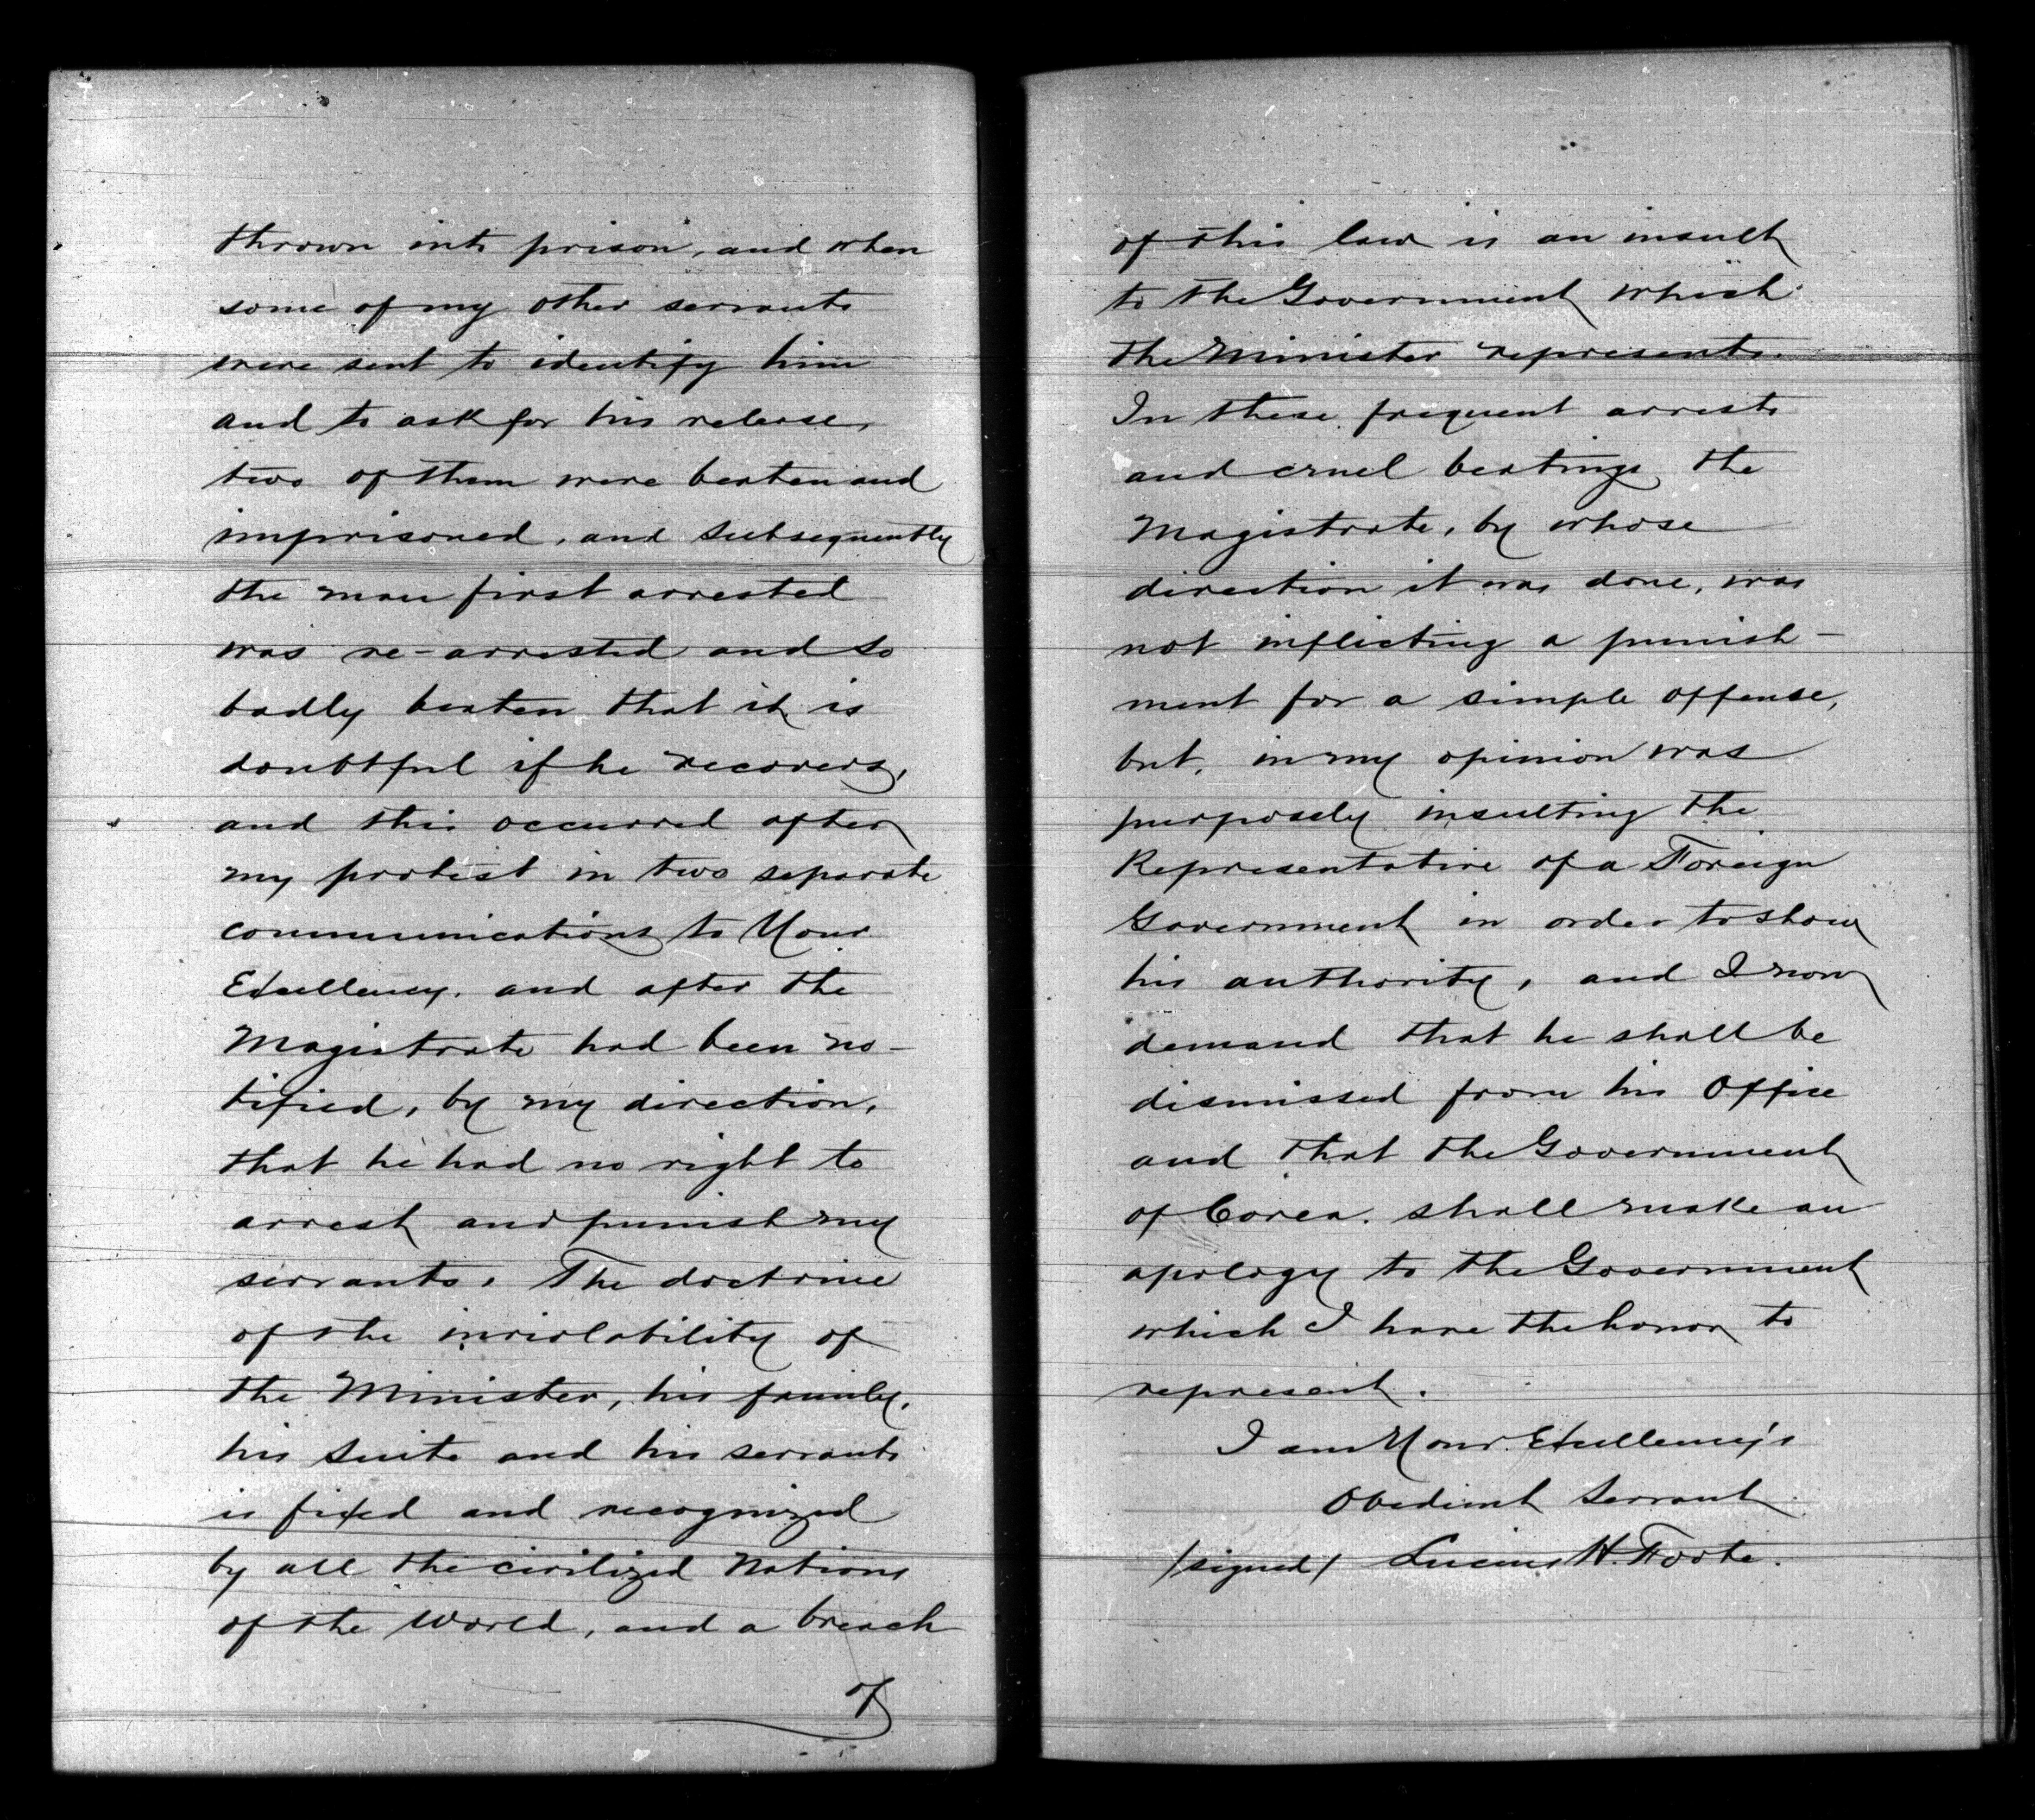 thrown into prison, and when
some of my other servants
were sent to identify him
and to ask for his release,
two of them were beaten and
imprisoned, and subsequently
the man first arrested
was re-arrested and so
badly beaten that it is
doubtful if he recovers,
and this occurred after
my protest in two separate
communications to Your
Excellency, and after the
Magistrate had been no-
tified, by my direction,
that he had no right to
arrest and punish my
servants. The doctrine
of the inviolability of
the Minister, his family,
his suite and his servants
is fixed and recognized
by all the civilized Nations
of the World, and a breach
of
of this law is an insult
to the Government which
the Minister represents.
In these frequent arrests
and cruel beatings the
Magistrate, by whose
direction it was done, was
not inflicting a punish-
ment for a simple offense,
but, in my opinion was
purposely insulting the
Representative of a Foreign
Government in order to show
his authority, and I now
demand that he shall be
dismissed from his Office
and that the Government
of Corea. shall make an
apology to the Government
which I have the honor to
represent.
I am Your Excellency's
Obedient Servant
/signed/ Lucius H. Foote.